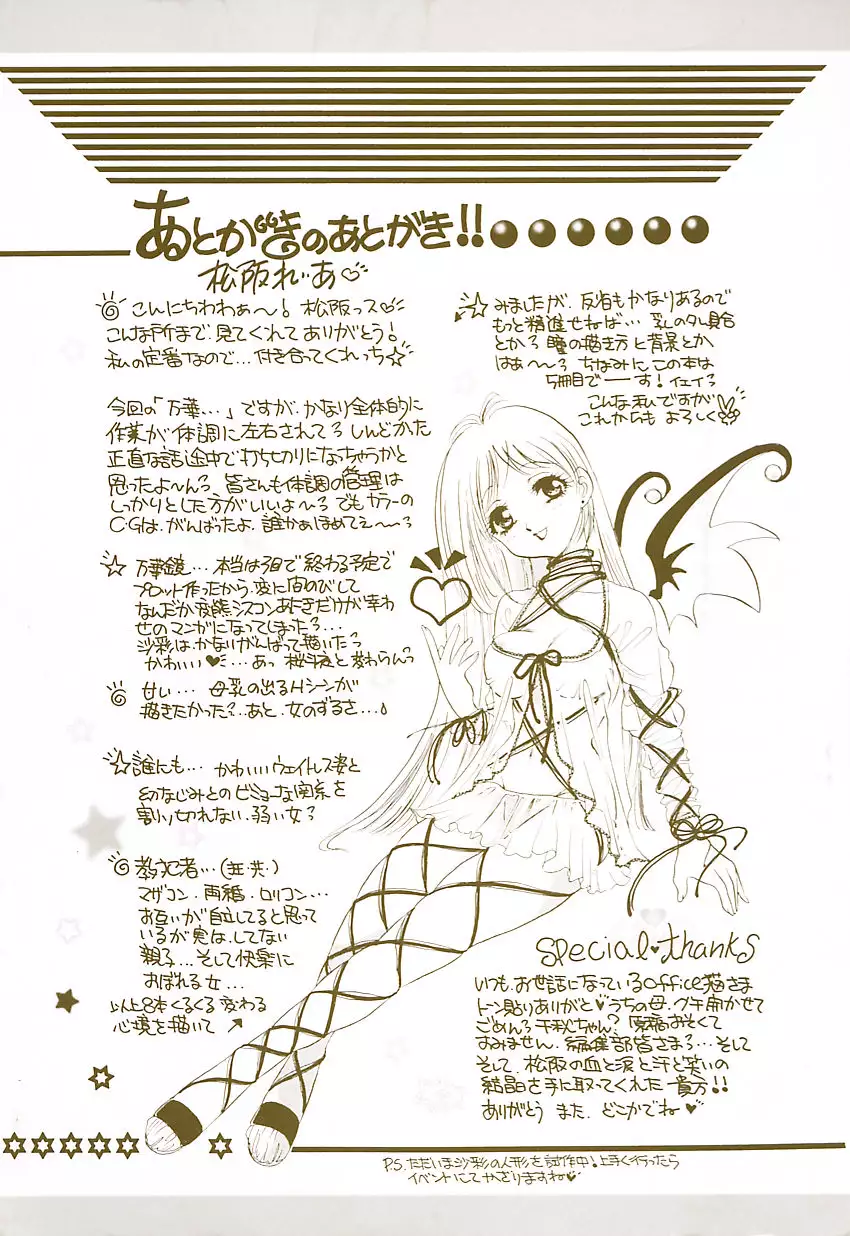 あとがきのあとがき!!
松阪れいあ♡
こんにちわわぁ〜! 松阪っス♡
こんな所まで見てくれてありがとう!
私の定番なので…付き合ってくれっち☆
今回の「万華…」ですが、かなり全体的に
作業が体調に左右されてるしんどかた
正直な話途中で打ちせりになっちゃうかと
思ったよ〜んる 皆さんも体調の管理は
しっかりとした方がいいよ〜る でもカラーの
C・Gは、がんばったよ、誰かぁほめてぇ〜る
☆ 万華鏡…本当は3回で終わる予定で
プロット作ったから、変に間のびして
なんだか変態シスコンあにきだけが幸わ
せのマンガになってしまった?…
沙彩は、かなりがんばって描いた?
かわいい♥…あっ 桜斗と変わらんっ
甘い… 母乳の出るHシーンが
描きたかった?あと、女のずるさ…
☆誰にも… かわいいウェイトレス姿と
幼なじみとのビミョーな関系を
割り切れない、弱い女?
教犯者…(共・共)
マザコン、再婚、ロリコン…
お互いが自立してると思って
いるが実は、してない
親子…そして快楽に
おぼれる女…
以上8本くるくる変わる
心境を描いて ↗
☆みましたが、反省もかなりあるので
もっと精進せねば… 乳のタレ具合
とかる 瞳の描き方と背景とか
はぁ〜〜る ちなみにこの本は
5冊目でーす! イェイる
こんな私ですが
これからも よろしく
special♥thanks
いつも、お世話になっているoffice猫さま
トーン貼りありがと♥うちの母、グチ聞かせて
ごめんる千秋ちゃん? 原稿おそくて
すみません、編集部皆さまる…そして
そして、松阪の血と涙と汗と笑いの
結晶を手に取ってくれた 貴方!!
ありがとう また、どこかでね♥
P.S.ただいま沙彩の人形を試作中!上手く行ったら
イベントにてかざりますね♥